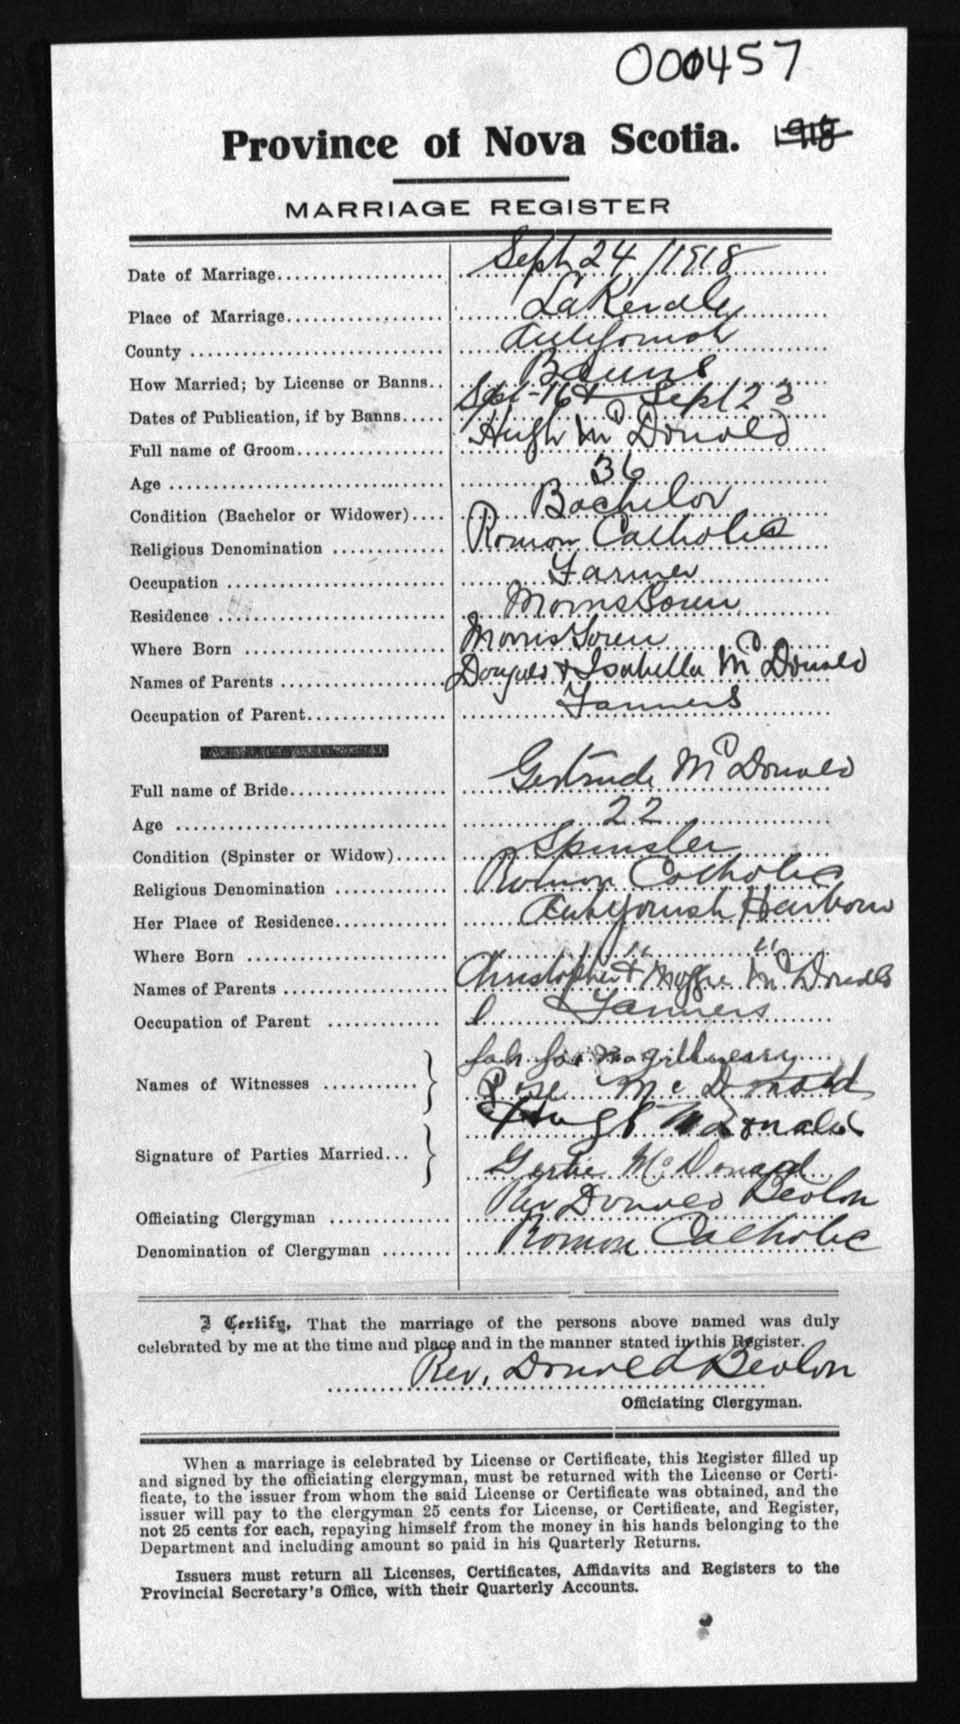 000457
Province of Nova Scotia. 1918
MARRIAGE REGISTER
Date of Marriage Sept 24 / 1918
Place of Marriage Lakevale
County Antigonish
How Married; by License or Banns.. Banns
Dates of Publication, if by Banns Sept-16 + Sept 23
Full name of Groom Hugh McDonald
Age 36
Condition (Bachelor or Widower) Bachelor
Religious Denomination Roman Catholic
Occupation Farmer
Residence Morristown
Where Born Morristown
Names of Parents Dougald + Isabella McDonald
Occupation of Parent Farmers
Full name of Bride Gertrude McDonald
Age 22
Condition (Spinster or Widow) Spinster
Religious Denomination Roman Catholic
Her Place of Residence Antigonish Harbour
Where Born " "
Names of Parents Christopher + Maggie McDonald
Occupation of Parent Farmers
Names of Witnesses
Rose McDonald
Signature of Parties Married... Hugh McDonald
Gertie McDonald
Officiating Clergyman Rev Donald Beaton
Denomination of Clergyman Roman Catholic
I Certify, That the marriage of the persons above named was duly
celebrated by me at the time and place and in the manner stated in this Register.
Rev. Donald Beaton
Officiating Clergyman.
When a marriage is celebrated by License or Certificate, this Register filled up
and signed by the officiating clergyman, must be returned with the License or Certi-
ficate, to the issuer from whom the said License or Certificate was obtained, and the
issuer will pay to the clergyman 25 cents for License, or Certificate, and Register,
not 25 cents for each, repaying himself from the money in his hands belonging to the
Department and including amount so paid in his Quarterly Returns.
Issuers must return all Licenses, Certificates, Affidavits and Registers to the
Provincial Secretary's Office, with their Quarterly Accounts.